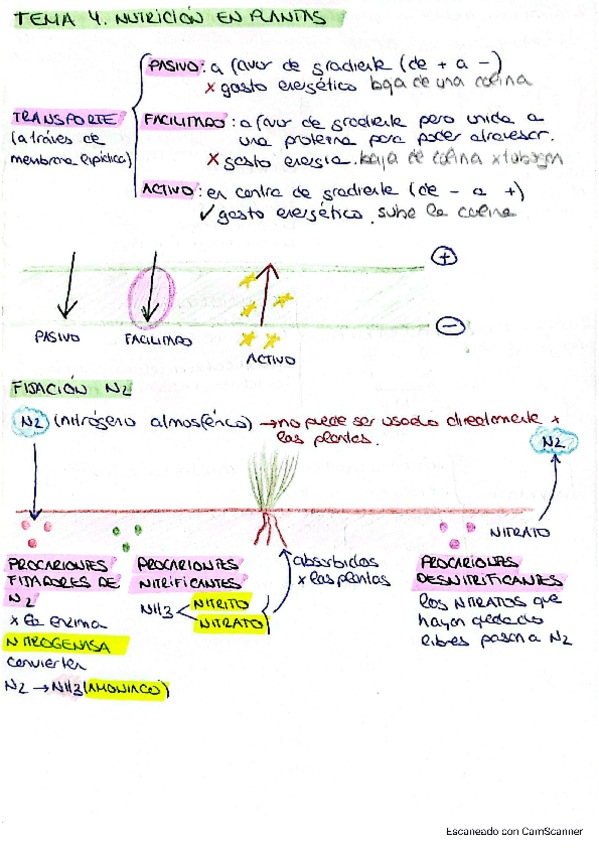 TEMA 4. NUTRICIÓN EN PLANTAS
TRANSPORTE
(a través de
membrana lipídica)
PASIVO: a favor de gradiente (de + a -)
x gasto energético baja de una colina
FACILITADO: a favor de gradiente pero unida a
una proteína para poder atravesar.
x gasto energía. baja de colina x tobogan
ACTIVO: en contra de gradiente (de - a +)
✓ gasto energético. sube la colina
+
-
PASIVO
FACILITADO
ACTIVO
FIJACIÓN N2
N2 (nitrógeno atmosférico) → no puede ser usado directamente x
las plantas.
N2
NITRATO
PROCARIONTES
FIJADORES DE
N2
x la enzima
NITROGENASA
convierten
N2 → NH3 (AMONIACO)
PROCARIONTES
NITRIFICANTES
NH3 < NITRITO
NITRATO
absorbidos
x las plantas
PROCARIONTES
DESNITRIFICANTES
los NITRATOS que
hayan quedado
libres pasan a N2
Escaneado con CamScanner